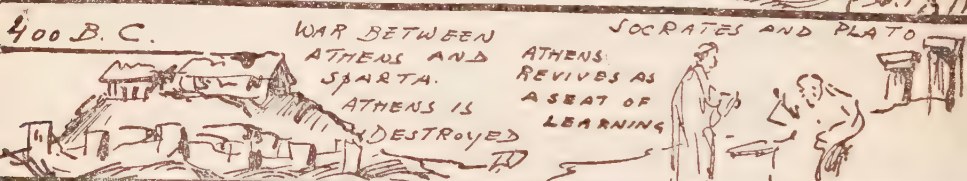 400 B.C.
WAR BETWEEN
ATHENS AND
SPARTA.
ATHENS IS
DESTROYED
ATHENS
REVIVES AS
A SEAT OF
LEARNING
SOCRATES AND PLATO